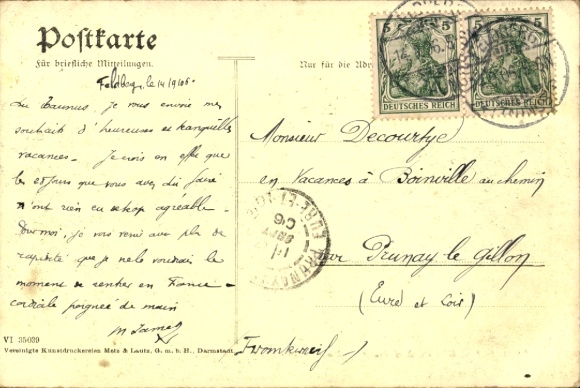 Postkarte
Für briefliche Mitteilungen.
Nur für die Adr
5 5
DEUTSCHES REICH
5 5
DEUTSCHES REICH
Feldberg, le 14/9/06.
Du Taunus, je vous envoie mes
souhaits d'heureuses et tranquilles
vacances - Je crois en effet que
les
que vous avez dû faire
n'ont rien eu de trop agréable.
Pour moi, je vois venir avec plus de
rapidité que je ne le voudrais le
moment de rentrer en France -
cordiale poignée de main
Monsieur Decourtye
en Vacances à Boinville au chemin
par Prunay le Gillon
(Eure et Loir)
PRUNAY
EURE-ET-LOIR
06
VI 35039
Vereinigte Kunstdruckereien Metz & Lautz, G. m. b. H., Darmstadt